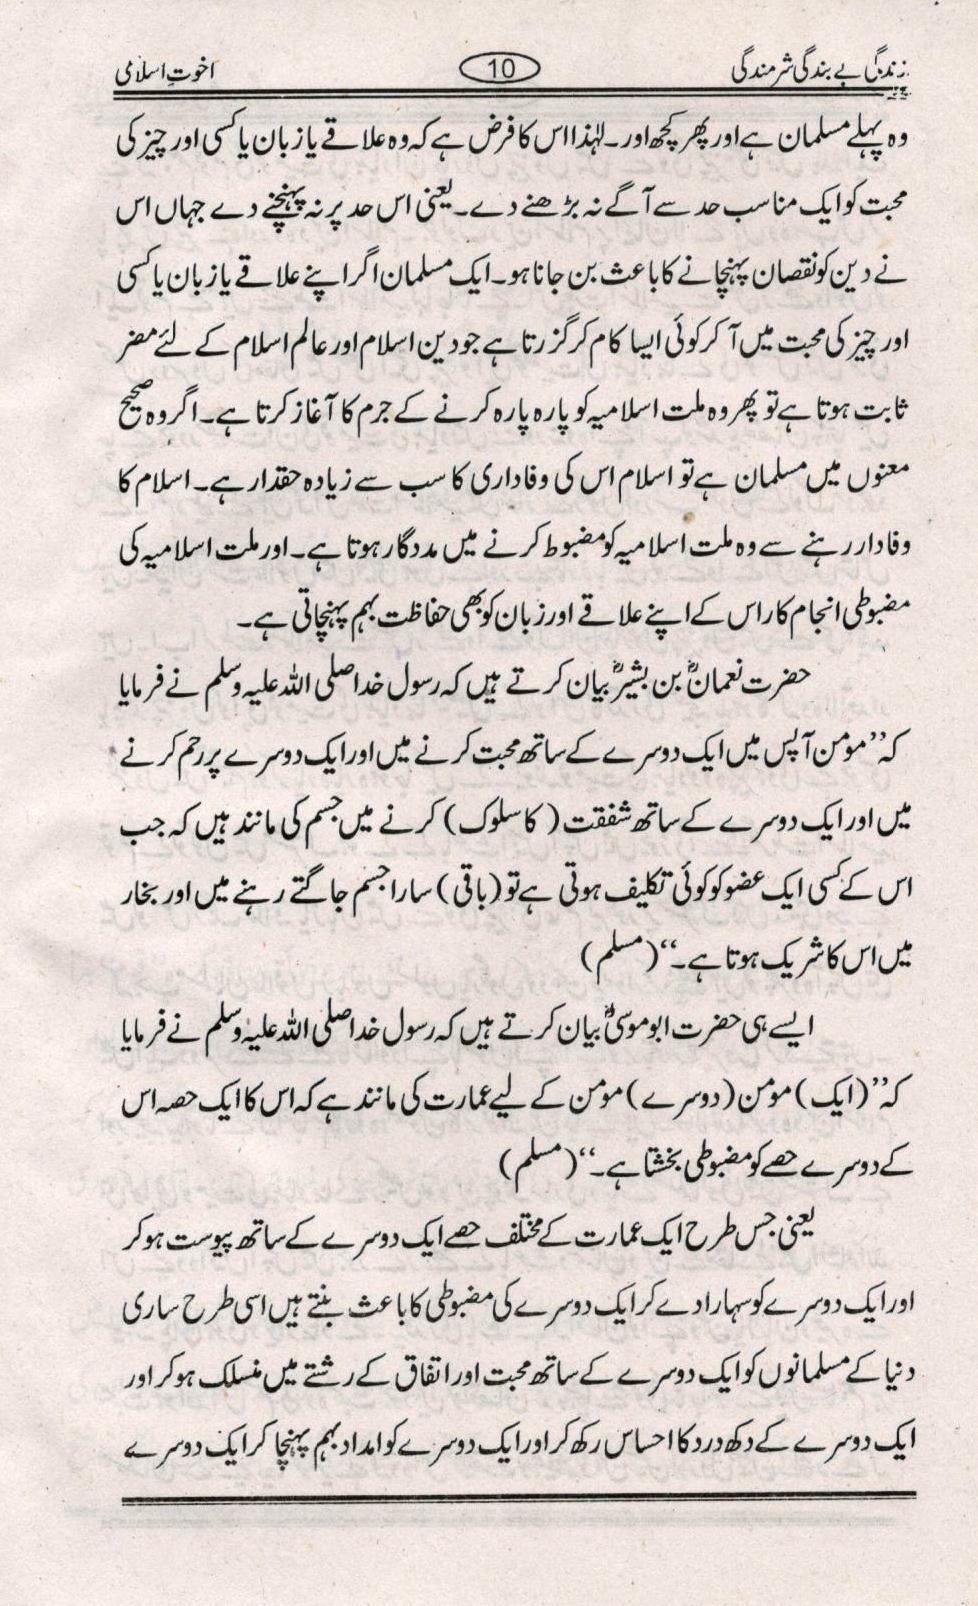 زندگی بے بندگی شرمندگی 10 اخوتِ اسلامی
وہ پہلے مسلمان ہے اور پھر کچھ اور۔ لہٰذا اس کا فرض ہے کہ وہ علاقے یا زبان یا کسی اور چیز کی
محبت کو ایک مناسب حد سے آگے نہ بڑھنے دے۔ یعنی اس حد پر نہ پہنچنے دے جہاں اس
نے دین کو نقصان پہنچانے کا باعث بن جانا ہو۔ ایک مسلمان اگر اپنے علاقے یا زبان یا کسی
اور چیز کی محبت میں آ کر کوئی ایسا کام کر گزرتا ہے جو دین اسلام اور عالم اسلام کے لئے مضر
ثابت ہوتا ہے تو پھر وہ ملت اسلامیہ کو پارہ پارہ کرنے کے جرم کا آغاز کرتا ہے۔ اگر وہ صحیح
معنوں میں مسلمان ہے تو اسلام اس کی وفاداری کا سب سے زیادہ حقدار ہے۔ اسلام کا
وفادار رہنے سے وہ ملت اسلامیہ کو مضبوط کرنے میں مددگار ہوتا ہے۔ اور ملت اسلامیہ کی
مضبوطی انجام کار اس کے اپنے علاقے اور زبان کو بھی حفاظت بہم پہنچاتی ہے۔
حضرت نعمانؓ بن بشیرؓ بیان کرتے ہیں کہ رسول خدا صلی اللہ علیہ وسلم نے فرمایا
کہ ’’مومن آپس میں ایک دوسرے کے ساتھ محبت کرنے میں اور ایک دوسرے پر رحم کرنے
میں اور ایک دوسرے کے ساتھ شفقت (کا سلوک) کرنے میں جسم کی مانند ہیں کہ جب
اس کے کسی ایک عضو کو کوئی تکلیف ہوتی ہے تو (باقی) سارا جسم جاگتے رہنے میں اور بخار
میں اس کا شریک ہوتا ہے۔‘‘ (مسلم)
ایسے ہی حضرت ابو موسیٰؓ بیان کرتے ہیں کہ رسول خدا صلی اللہ علیہ وسلم نے فرمایا
کہ ’’(ایک) مومن (دوسرے) مومن کے لیے عمارت کی مانند ہے کہ اس کا ایک حصہ اس
کے دوسرے حصے کو مضبوطی بخشتا ہے۔‘‘ (مسلم)
یعنی جس طرح ایک عمارت کے مختلف حصے ایک دوسرے کے ساتھ پیوست ہو کر
اور ایک دوسرے کو سہارا دے کر ایک دوسرے کی مضبوطی کا باعث بنتے ہیں اسی طرح ساری
دنیا کے مسلمانوں کو ایک دوسرے کے ساتھ محبت اور اتفاق کے رشتے میں منسلک ہو کر اور
ایک دوسرے کے دکھ درد کا احساس رکھ کر اور ایک دوسرے کو امداد بہم پہنچا کر ایک دوسرے